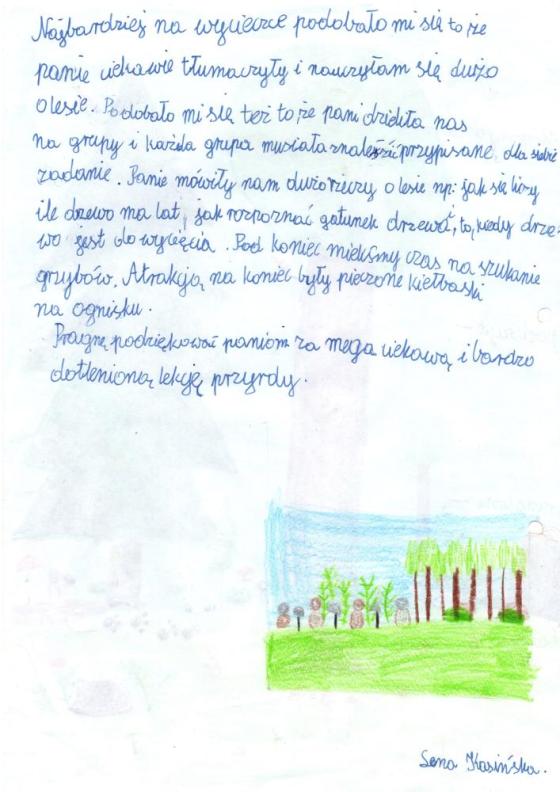 Najbardziej na wycieczce podobało mi się to, że
panie ciekawie tłumaczyły i nauczyłam się dużo
o lesie. Podobało mi się też to że pani dzieliła nas
na grupy i każda grupa musiała znaleźć przypisane dla siebie
zadanie. Panie mówiły nam dużo rzeczy o lesie np: jak się liczy
ile drzewo ma lat, jak rozpoznać gatunek drzewa, to, kiedy drze-
wo jest do wycięcia. Pod koniec mieliśmy czas na szukanie
grzybów. Atrakcją na koniec były pieczone kiełbaski
na ognisku.
Pragnę podziękować paniom za mega ciekawą i bardzo
dotlenioną lekcję przyrdy.
Lena Kasińska.